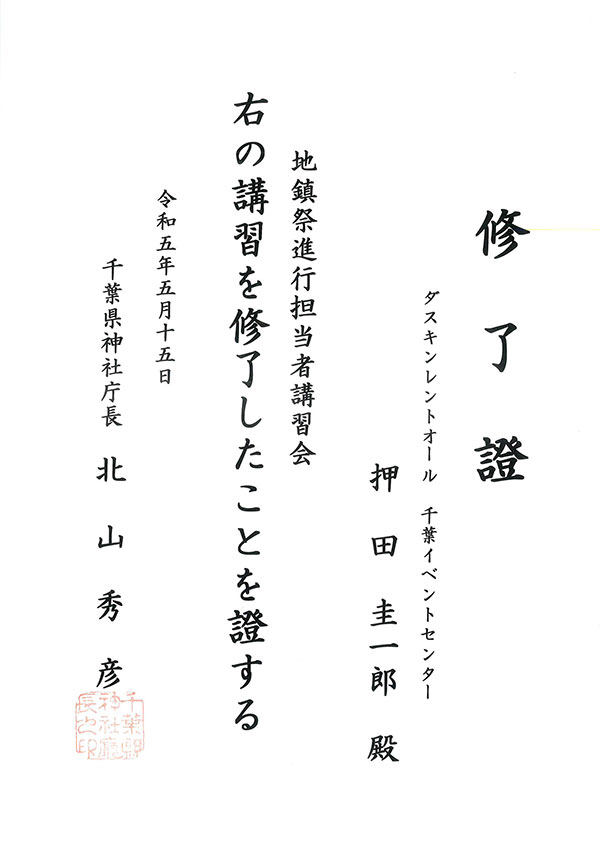 修了證
ダスキンレントオール 千葉イベントセンター
押田圭一郎 殿
地鎮祭進行担当者講習会
右の講習を修了したことを證する
令和五年五月十五日
千葉県神社庁長 北山秀彦
千葉縣
神社廳
長之印